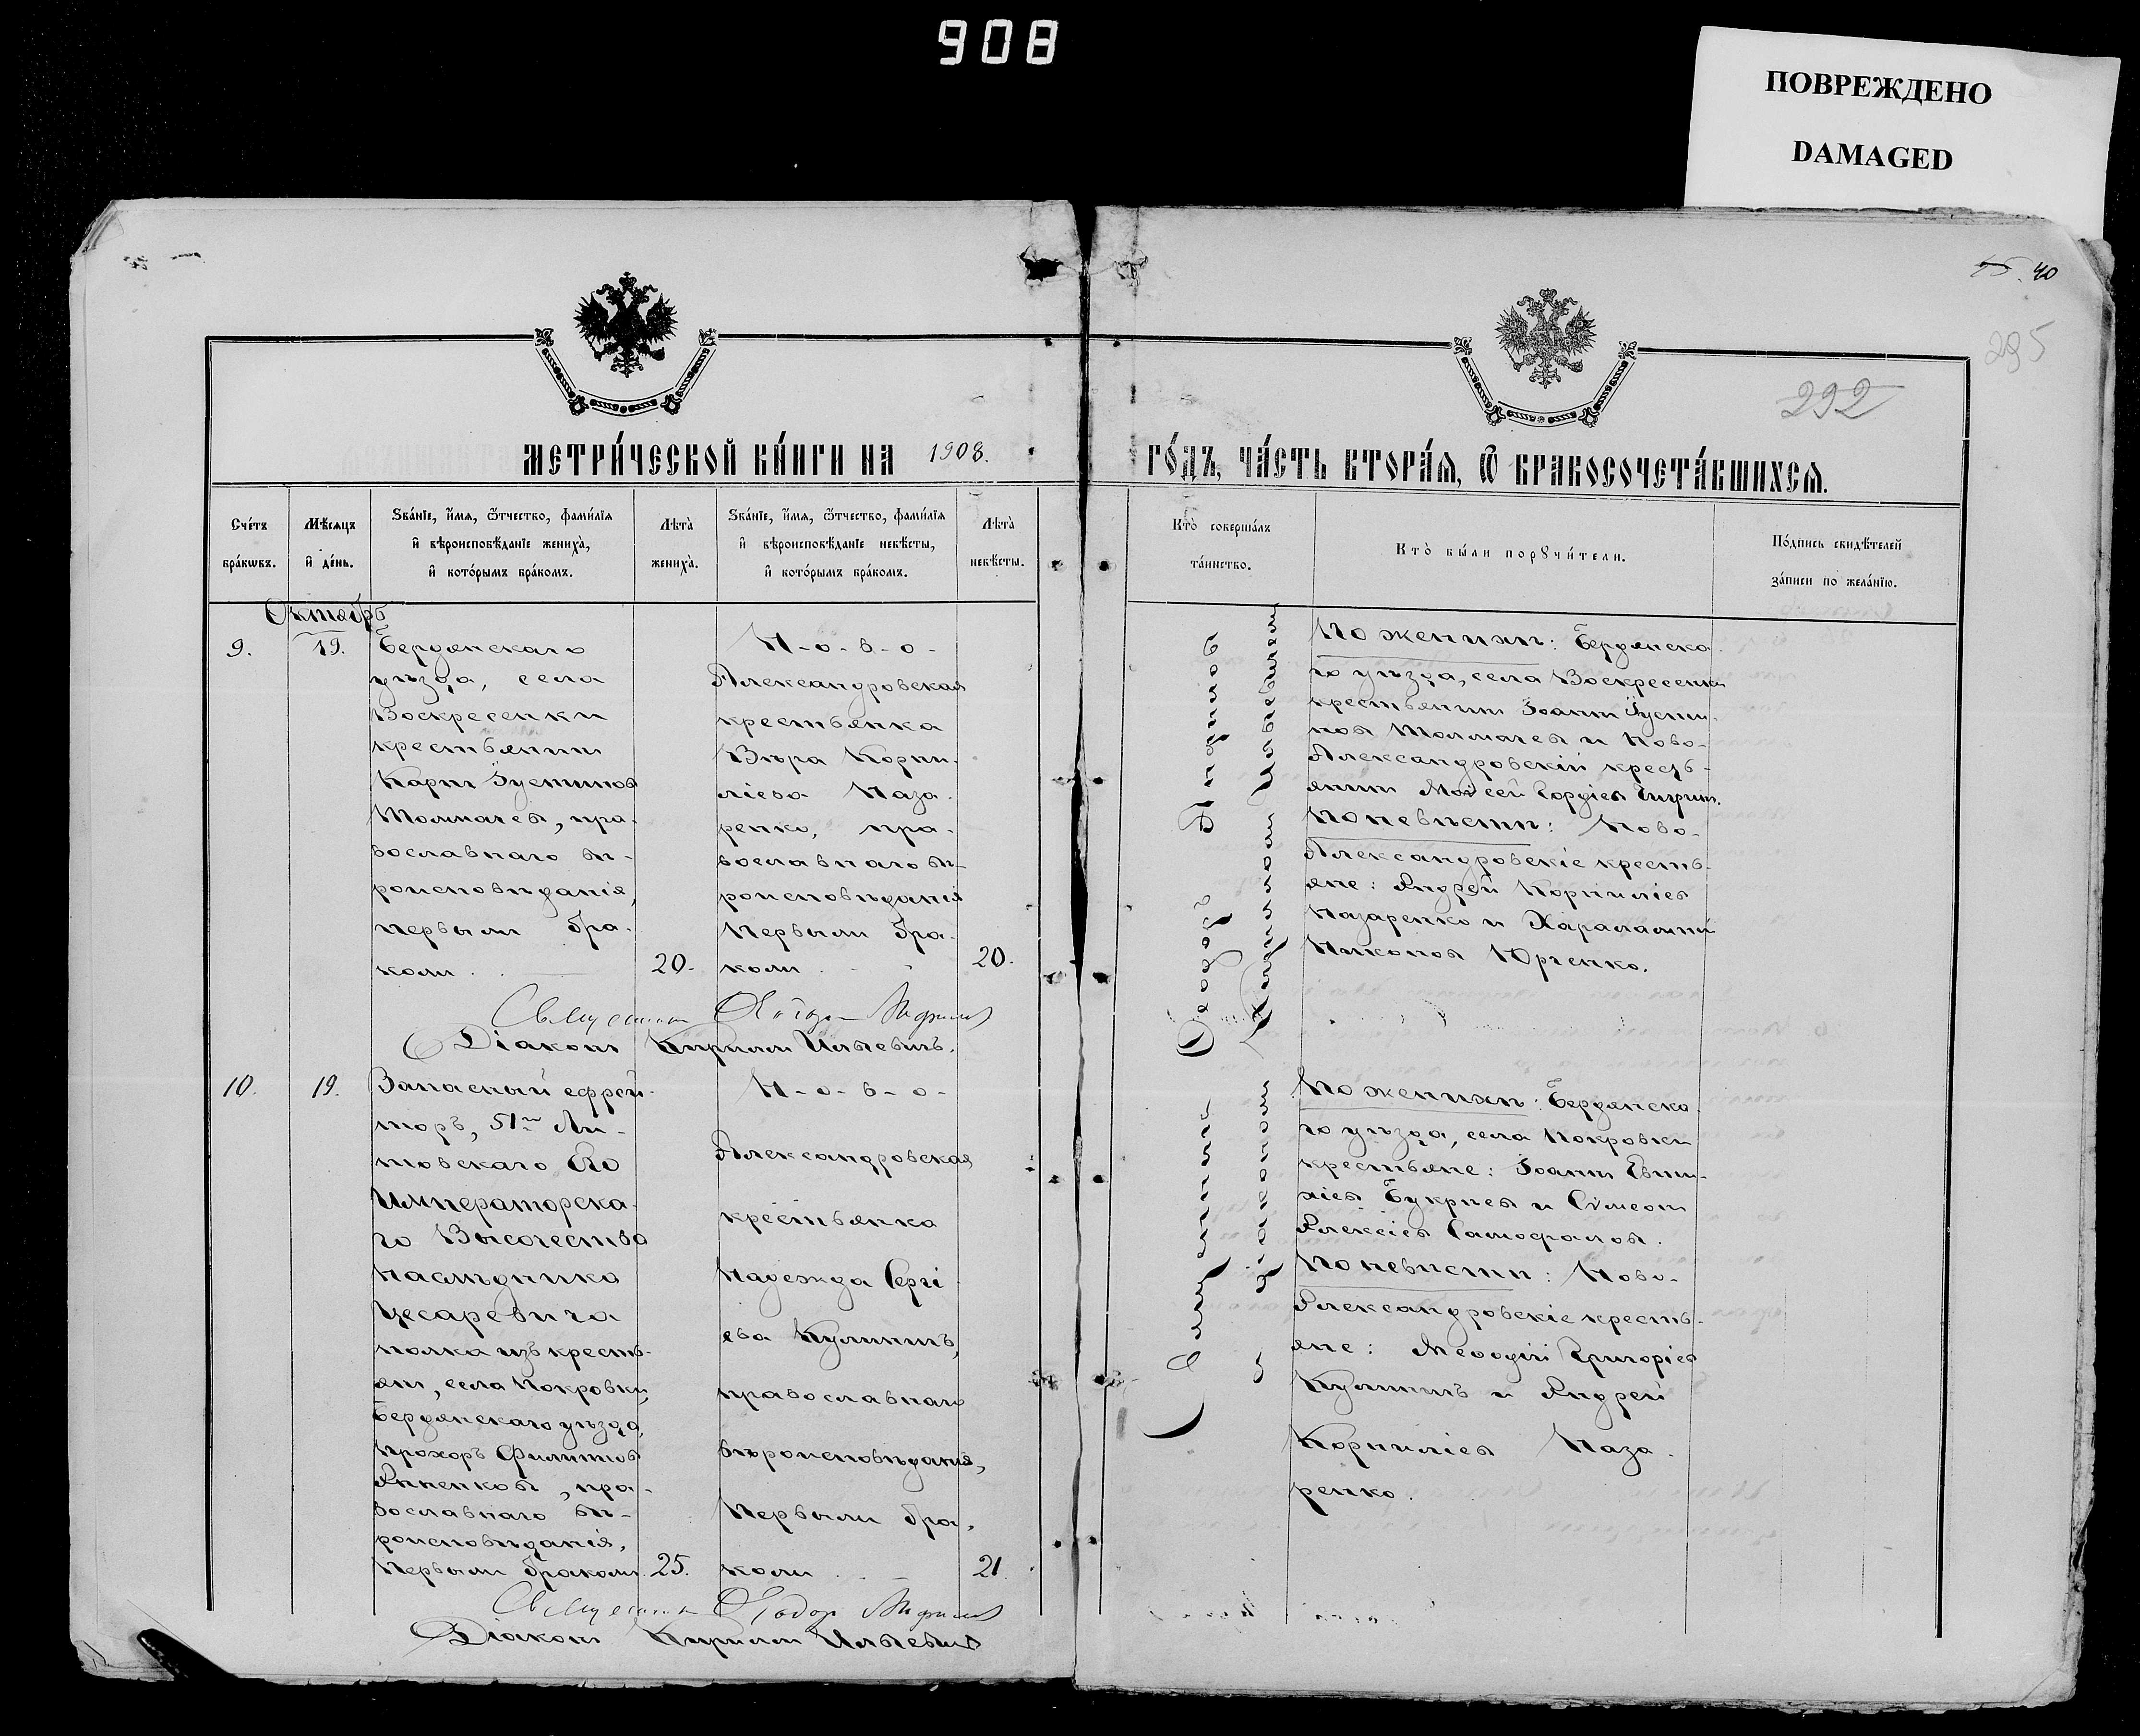 908
ПОВРЕЖДЕНО
DAMAGED
40
295
292
МЕТРИ́ЧЕСКОЙ КНИ́ГИ НА 1908.
ГО́ДЪ, ЧА́СТЬ ВТОРА́Я, Ѿ БРАКОСОЧЕТА́ВШИХСЯ.
Сче́тъ
бра́кѡвъ.
Мѣ́сяцъ
и҆ де́нь.
Ѕва́нїе, и҆́мя, ѻ҆́тчество, фами́лїя
и҆ вѣроисповѣ́данїе жениха̀,
и҆ кото́рымъ бра́комъ.
Лѣ́та
жениха̀.
Ѕва́нїе, и҆́мя, ѻ҆́тчество, фами́лїя
и҆ вѣроисповѣ́данїе невѣ́сты,
и҆ кото́рымъ бра́комъ.
Лѣ́та
невѣ́сты.
Кто̀ соверша́лъ
та́инство.
Кто̀ бы́ли порꙋчи́тели.
По́дпись свидѣ́телей
за́писи по жела́нїю.
Октябрь
9.
19.
Бердянскаго
уѣзда, села
Воскресенки
крестьянинъ
Карпъ Іустиновъ
Толмачевъ, пра-
вославнаго вѣ-
роисповѣданія,
первымъ бра-
комъ.
20.
Н-о-в-о-
Александровская
крестьянка
Вѣра Корни-
ліева Наза-
ренко, пра-
вославнаго вѣ-
роисповѣданія
Первымъ бра-
комъ.
20.
Ѳеодоръ
Кирилломъ Ильевичемъ
По женихѣ: Бердянска-
го уѣзда, села Воскресенки
крестьянинъ Іоаннъ Іусти-
новъ Толмачевъ и Ново-
Александровскій кресть-
янинъ Моисей Гордіевъ
По невѣстѣ: Ново-
Александровскіе кресть-
яне: Андрей Корниліевъ
Назаренко и Харалампій
Никоновъ Юрченко.
Священникъ Ѳеодоръ
Діаконъ Кириллъ Ильевичъ.
10.
19.
Запасный ефрей-
торъ, 51го Ли-
товскаго Его
Императорска-
го Высочества
Наслѣдника
Цесаревича
полка изъ кресть-
янъ, села Покровки,
Бердянскаго уѣзда,
Прохоръ Филипповъ
Янненковъ, пра-
вославнаго вѣ-
роисповѣданія,
Первымъ бракомъ.
25.
Н-о-в-о-
Александровская
крестьянка
Надежда Сергі-
ева Кулиничъ,
православнаго
вѣроисповѣданія,
Первымъ бра-
комъ.
21.
Священникъ
съ діакономъ
По женихѣ: Бердянска-
го уѣзда, села Покровки
крестьяне: Іоаннъ Евти-
хіевъ Букреевъ и Сѵмеонъ
Алексіевъ Самофаловъ.
По невѣстѣ: Ново-
Александровскіе кресть-
яне: Меѳодій Григоріевъ
Кулиничъ и Андрей
Корниліевъ Наза-
ренко.
Священникъ Ѳеодоръ
Діаконъ Кириллъ Ильевичъ